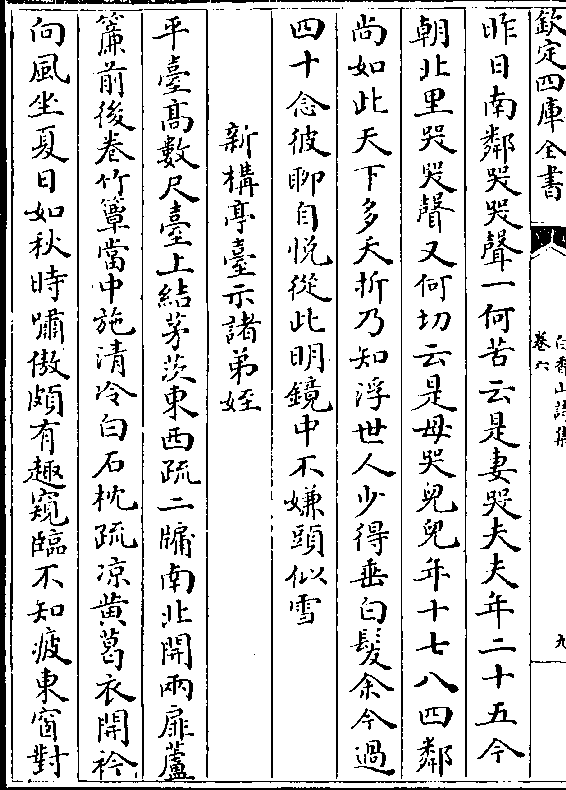 欽定四庫全書
白香山詩集
卷六
九
昨日南鄰哭哭聲一何苦云是妻哭夫夫年二十五今
朝北里哭哭聲又何切云是母哭兒兒年十七八四鄰
尚如此天下多夭折乃知浮世人少得垂白髮余今過
四十念彼聊自悅從此明鏡中不嫌頭似雪
新構亭臺示諸弟姪
平臺髙數尺臺上結茅茨東西疏二牖南北開兩扉蘆
簾前後卷竹簟當中施清冷白石枕疏凉黄葛衣開衿
向風坐夏日如秋時嘯傲頗有趣窺臨不知疲東窗對